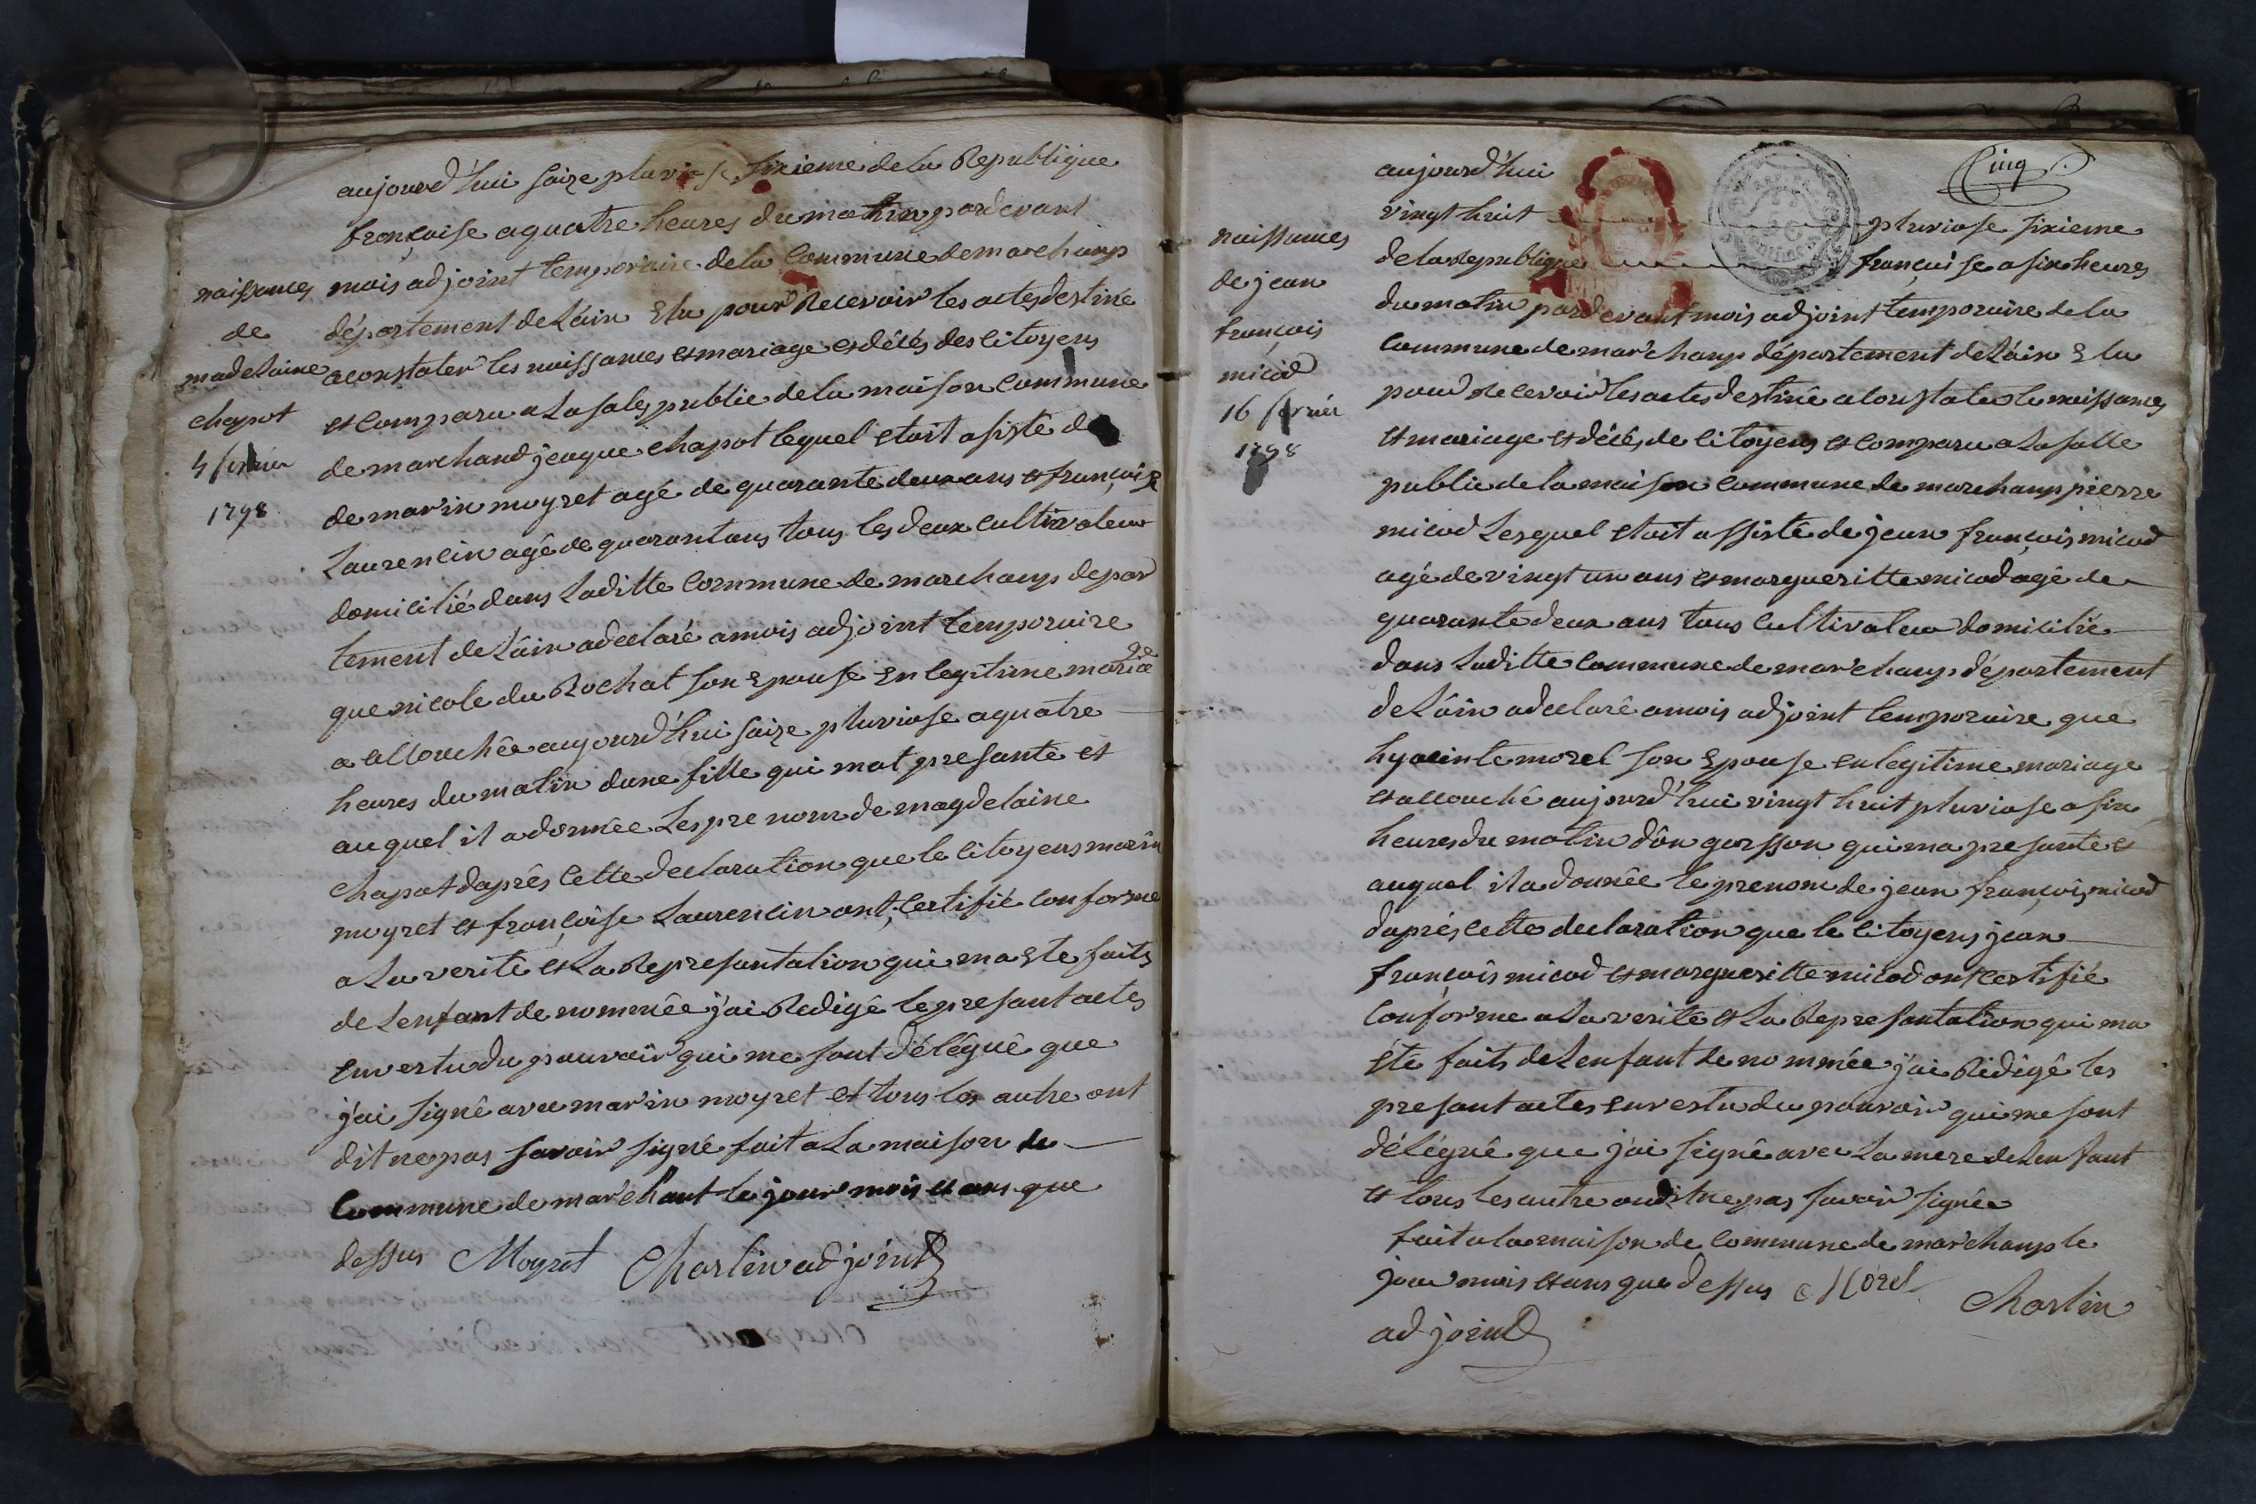 naissances
de
madelaine
chapot
4 fevrier
1798
aujourd'hui saize pluviose sixieme de la Republique
françoise a quatre heures du matin pardevant
mois adjoint temporaire de la Commune de marchamp
département de L'ain Elu pour Recevoir les actes destiné
a constater les naissances et mariage et décés des citoyens
et comparu a La sales public de la maison Commune
de marchand jeaque chapot lequel etoit asisté de
de marin moyret agé de quarante deux ans et françoise
Laurencin agé de quarant ans tous les deux Cultivateur
domicilié dans Laditte Commune de marchamp depar
tement de L'ain a declaré a mois adjoint temporaire
que nicole du Rochat son Epouse En legitime mariage
a accouchée aujourd'hui saize pluviose a quatre
heures du matin dune fille qui mat presanté et
auquel il a donnée Les prenom de magdelaine
Chapot daprés cette declaration que le citoyens marin
moyret et françoise Laurencin ont Certifié conforme
a La verité et La Represantation qui ma Ete faits
de Lenfant de nommée j'ai Redigé le presant actes
En vertu du pouvoir qui me sont délégué que
j'ai signé avec marin moyret et tous les autre ont
dit ne pas savoir signé fait a La maison de
Commune de marchant le jour mois et ans que
dessus Moyret Charlin adjoint
Cinq
naissances
de jean
françois
micod
16 fevrier
1798
aujourd'hui
vingt huit pluviose sixieme
de la Republique françaisse a six heures
du matin pardevant mois adjoint temporaire de la
Commune de marchamp département de L'ain Elu
pour Recevoir les actes destiné a constater le naissances
et mariage et décés de citoyens et comparu a La salle
public de la maison Commune de marchamp pierre
micod Lesquel etoit assisté de jean françois micod
agé de vingt un ans et margueritte micod agé de
quarante deux ans tous Cultivateur domicilié
dans Laditte Commune de marchamp département
de L'ain a declaré a mois adjoint temporaire que
hyacinte morel son Epouse en legitime mariage
et accouché aujourd'hui vingt huit pluviose a six
heures du matin d'un garsson qui ma presanté et
auquel il a donnée le prenom de jean françois micod
daprés cette declaration que le citoyens jean
françois micod et margueritte micod ont certifié
Conforme a La verité et La Represantation qui ma
été faits de Lenfant de nommée j'ai Redigé les
presant actes en vertu du pouvoir qui me sont
délégué que j'ai signé avec La mere de Lenfant
et tous les autre on dit ne pas savoir signée
fait a la maison de Commune de marchamp le
jour mois et ans que dessus Morel Charlin
adjoint